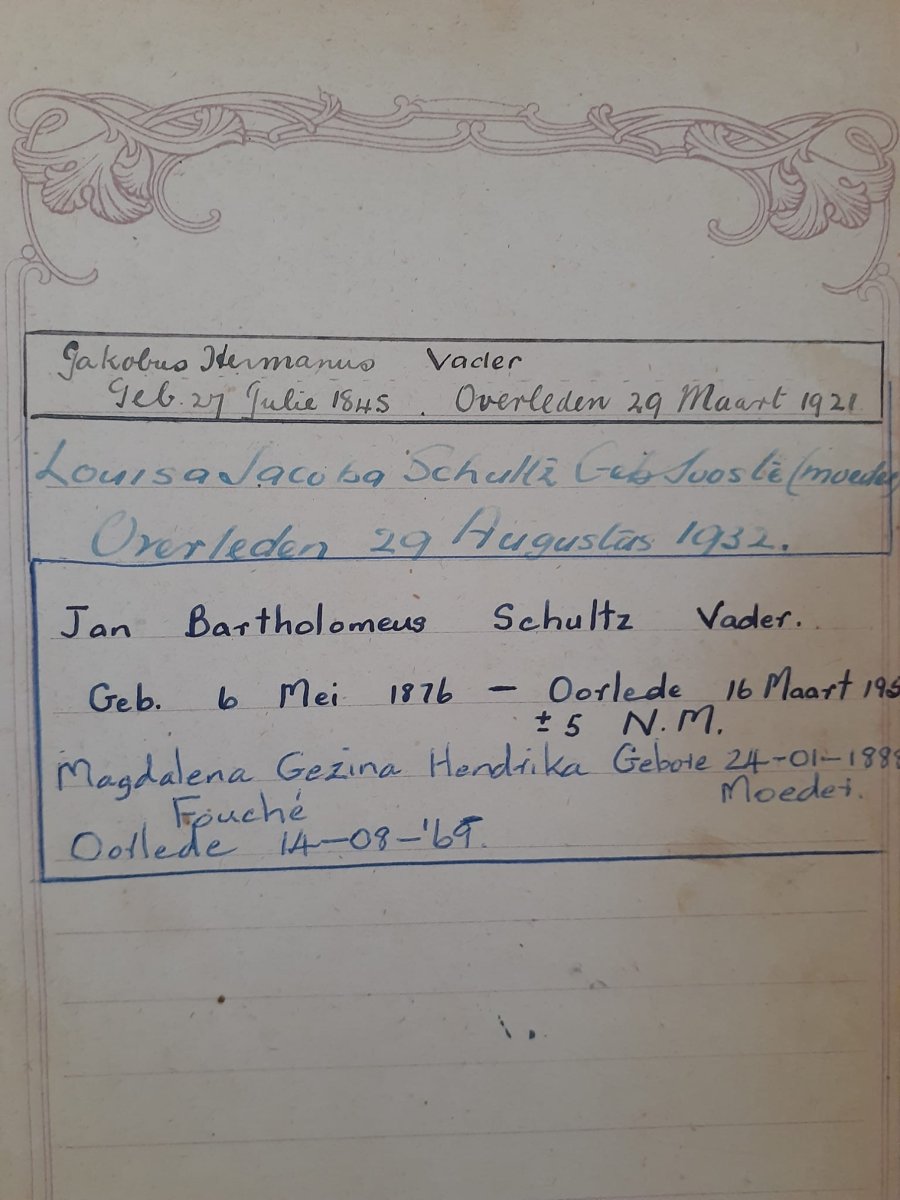 Jakobus Hermanus Vader
Geb. 27 Julie 1845 . Overleden 29 Maart 1921
Louisa Jacoba Schultz Geb Jooste (moeder
Overleden 29 Augustus 1932.
Jan Bartholomeus Schultz Vader.
Geb. 6 Mei 1876 — Oorlede 16 Maart 195
± 5 N.M.
Magdalena Gezina Hendrika Gebore 24-01-188
Fouché Moeder.
Oorlede 14-08-'69.